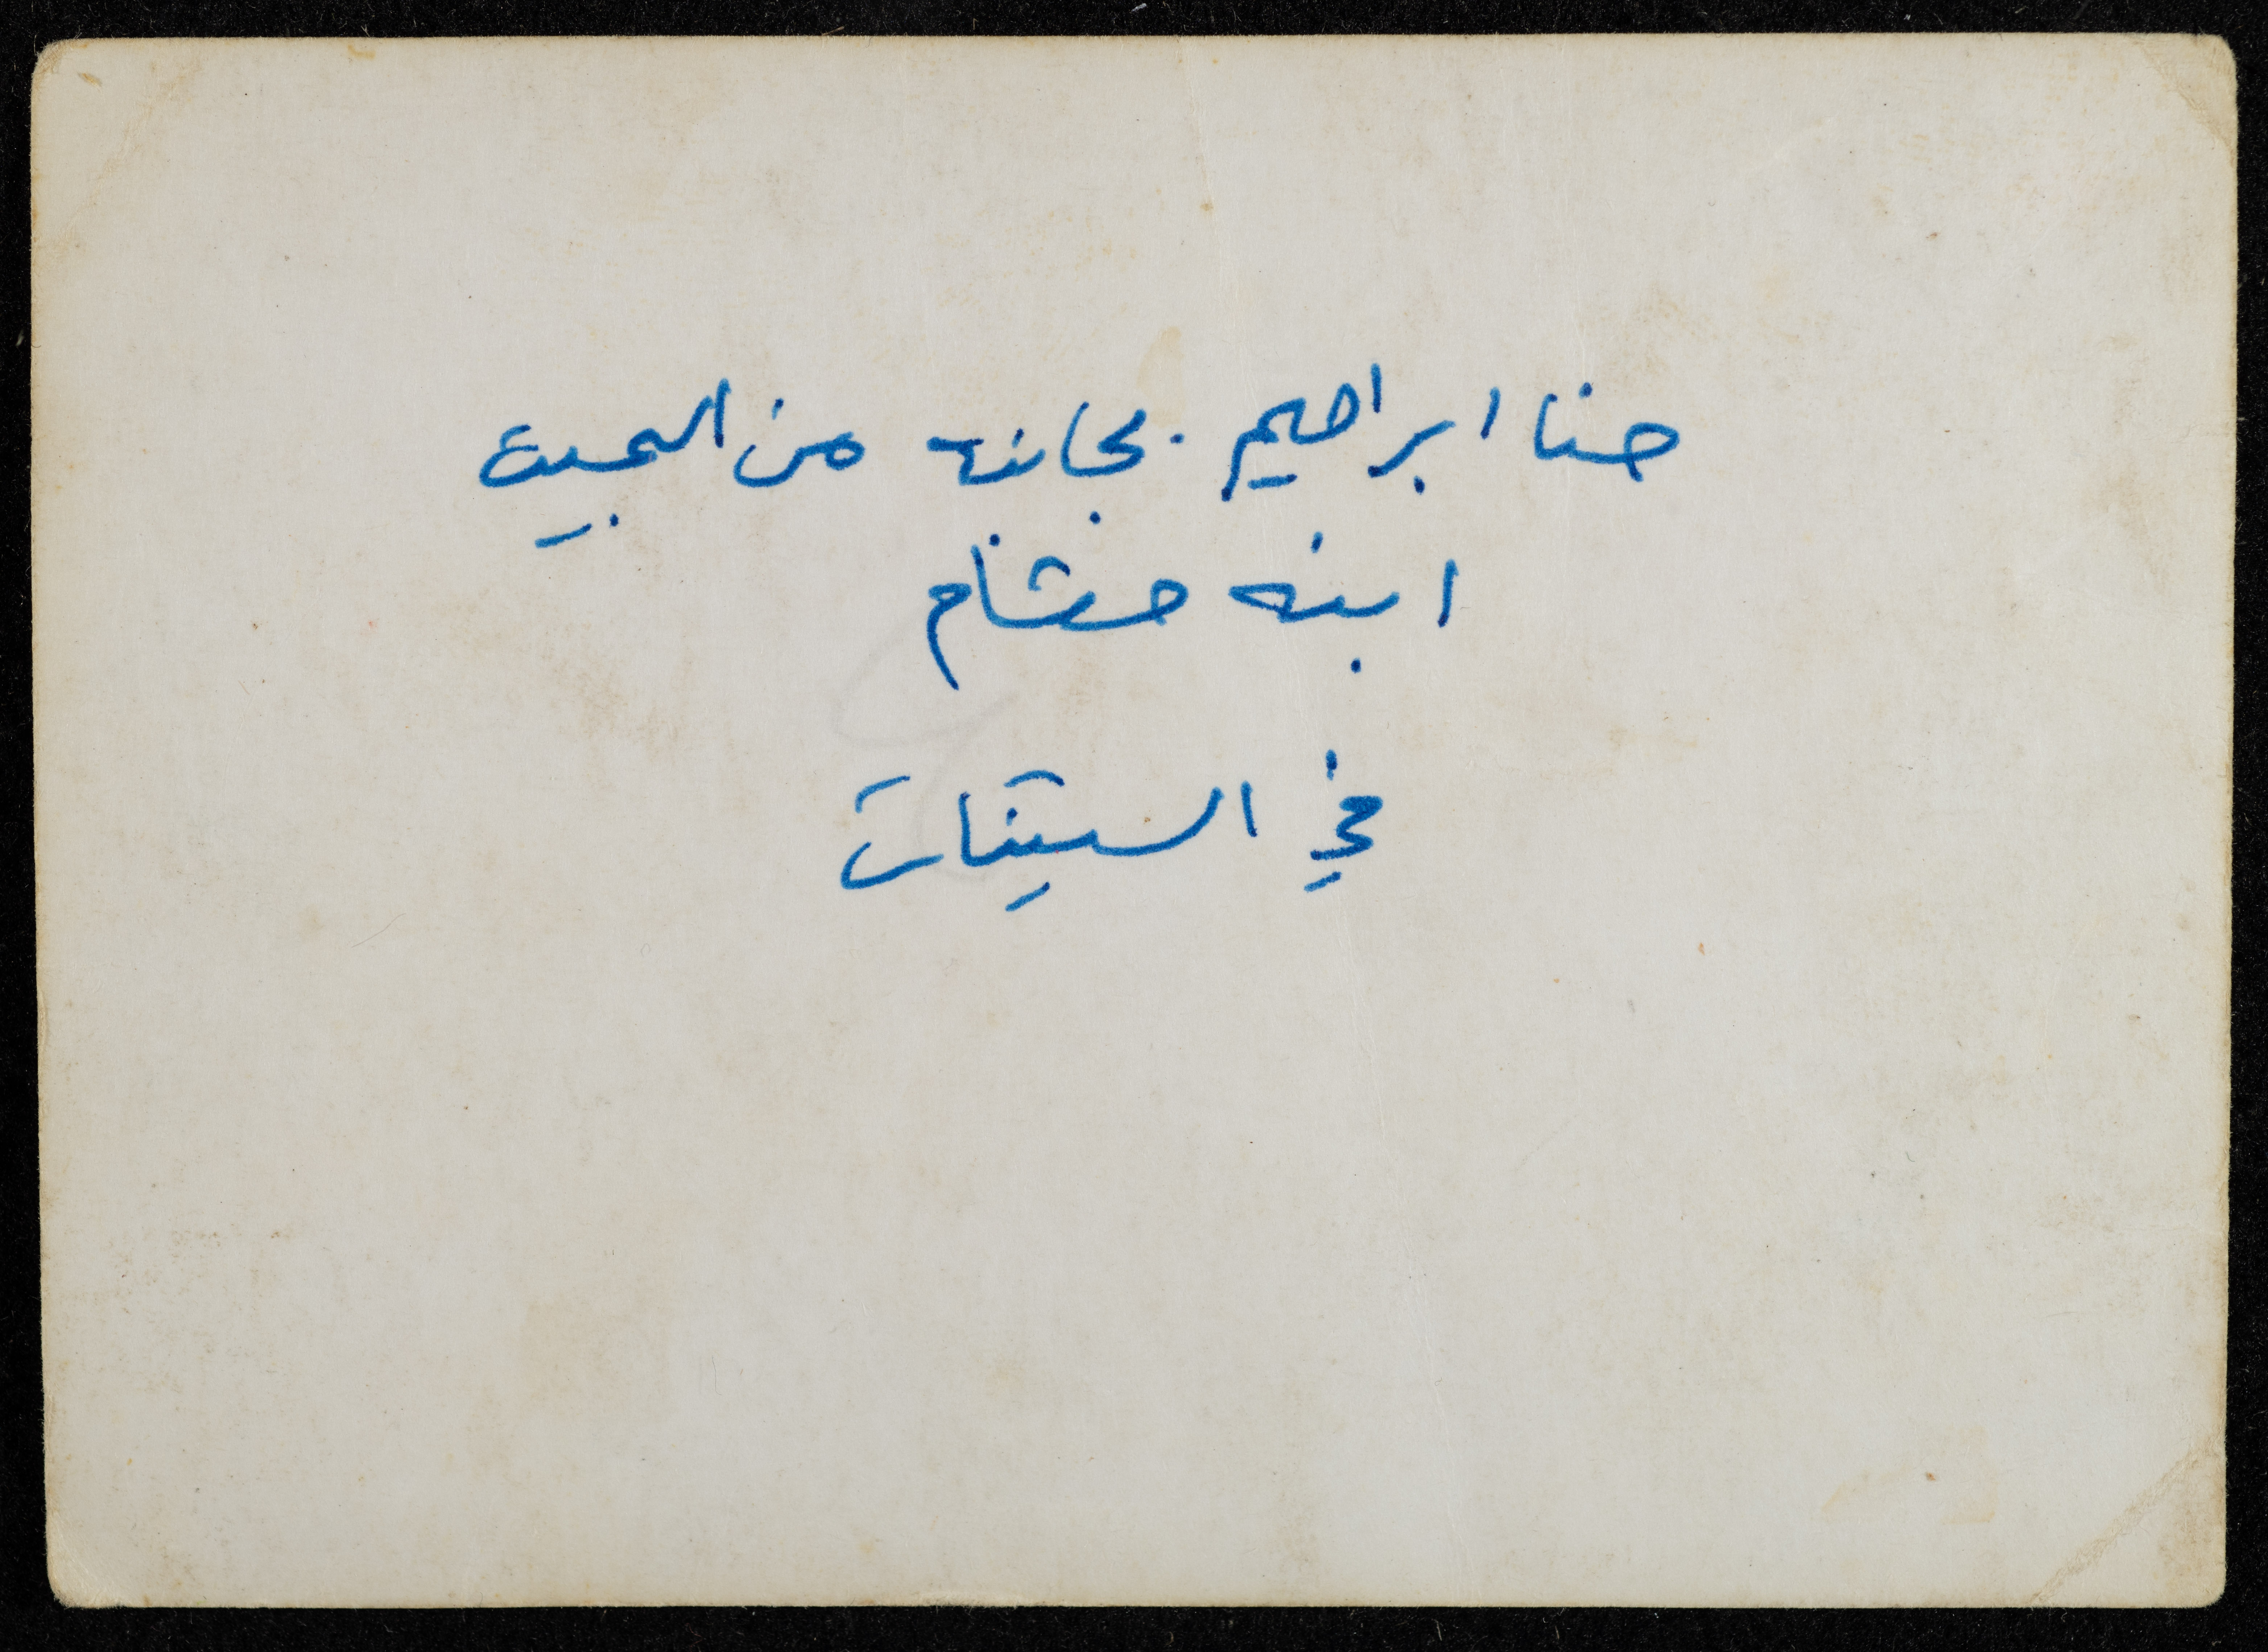 حنا ابراهيم . بجانبه من اليمين
ابنه هشام
في الستينات